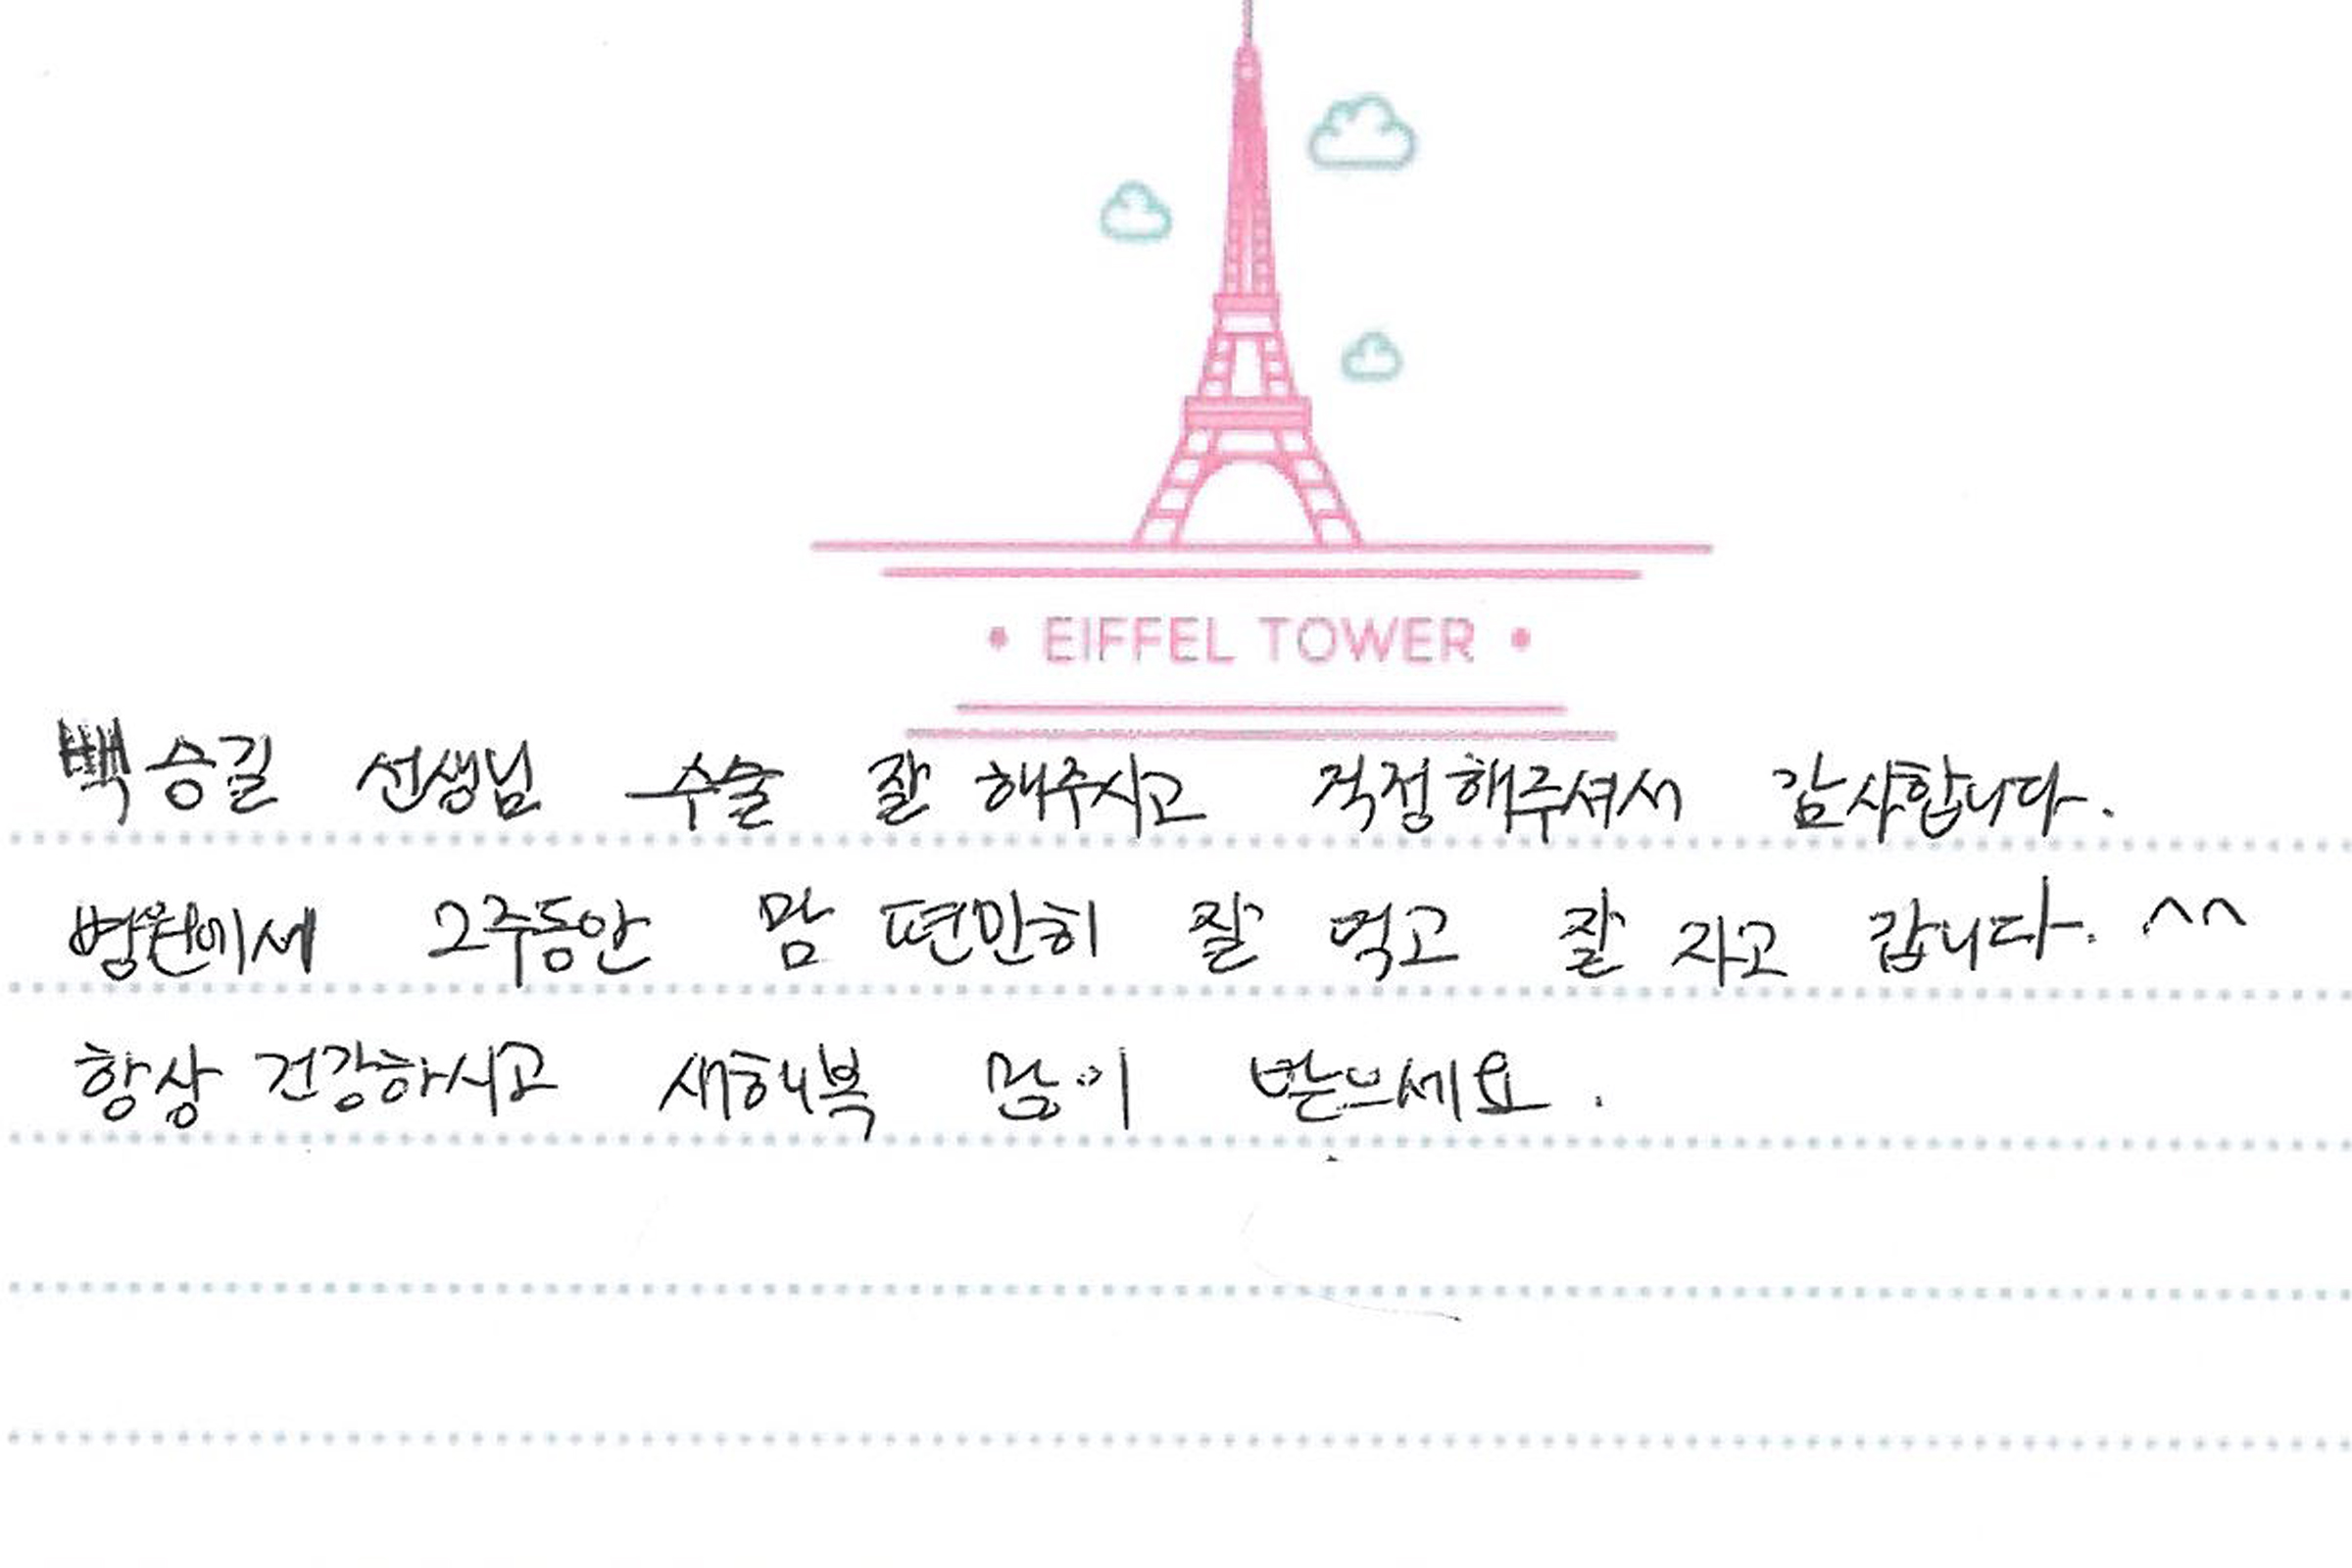 • EIFFEL TOWER •
백승길 선생님 수술 잘 해주시고 걱정해주셔서 감사합니다.
병원에세 2주동안 맘 편만히 잘 먹고 잘 자고 갑니다. ^^
항상 건강하시고 새해복 많이 받으세요.